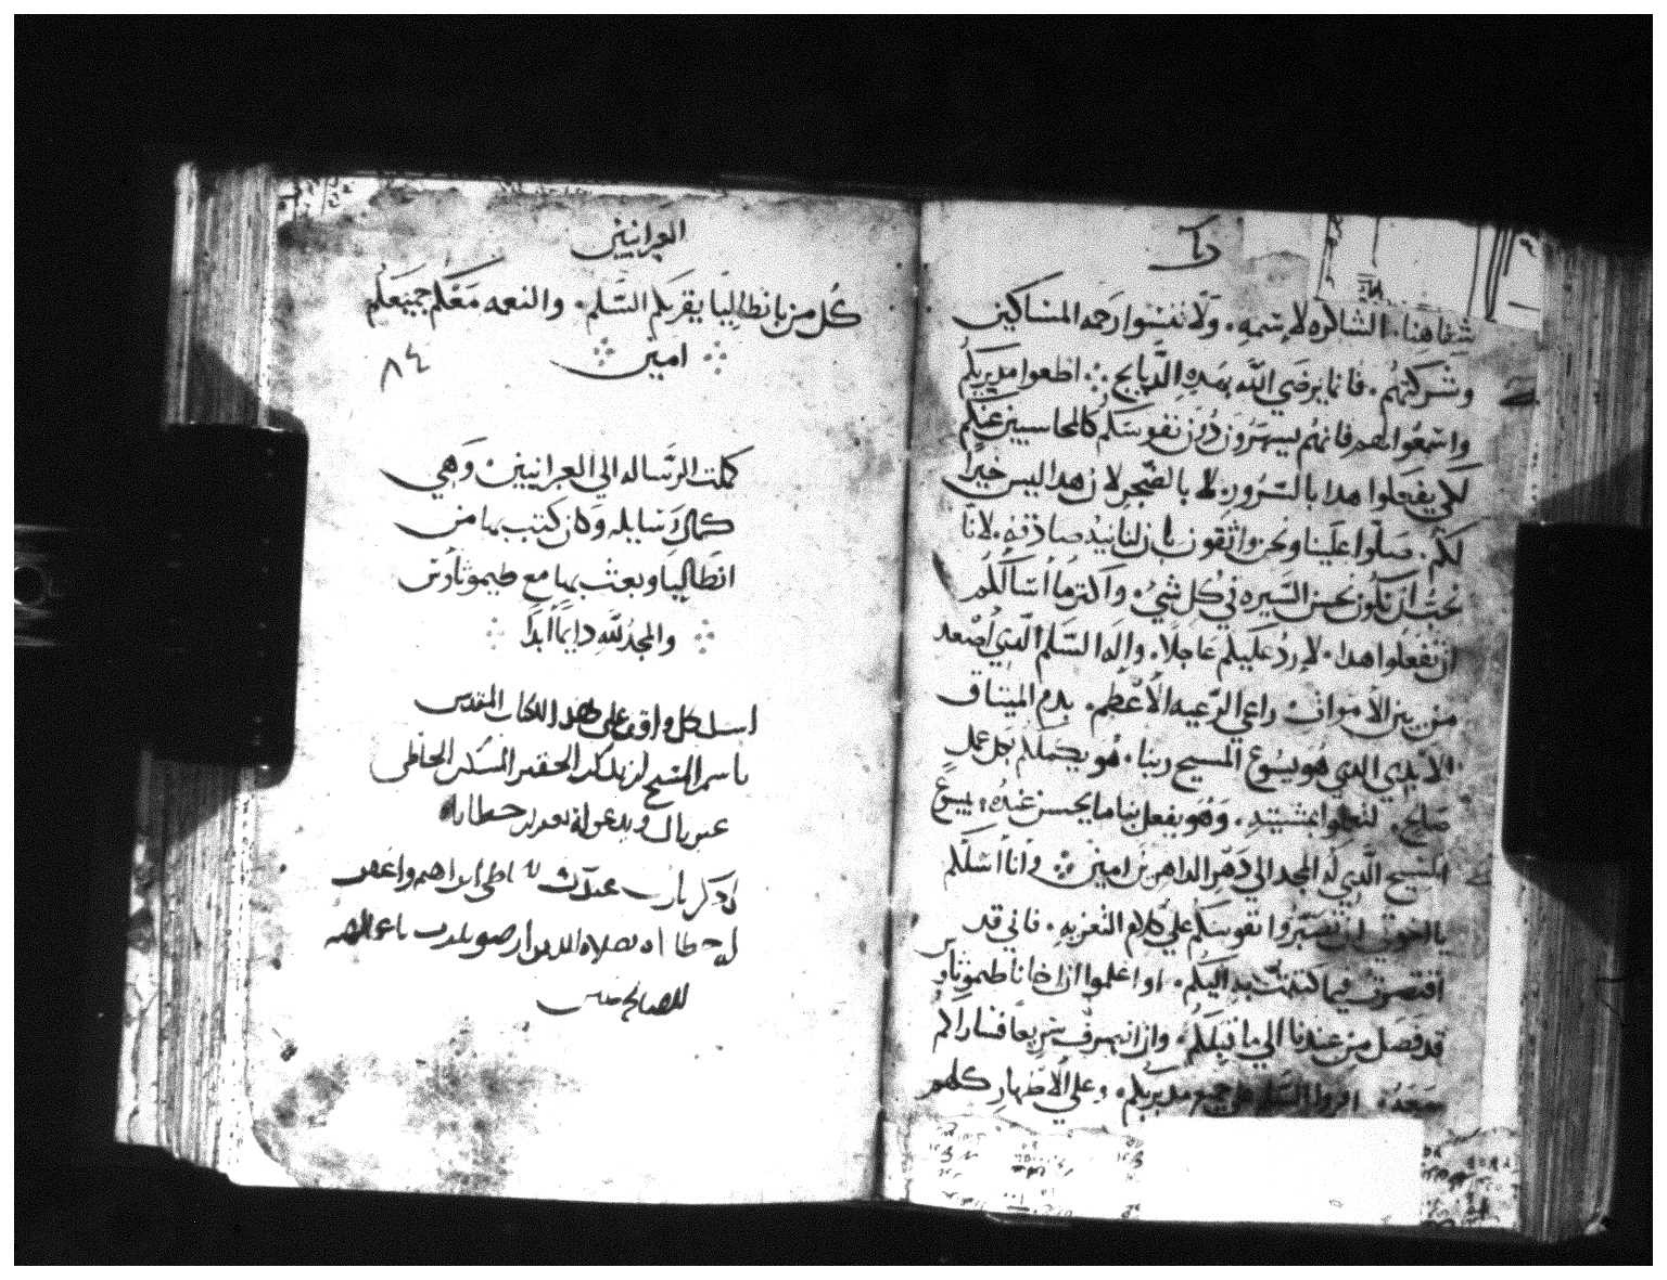 شفاهنا. الشاكره لاسمه. ولا تنسوا رحمه المساكين
وشركتهم. فانما يرضي الله بهده الدبايح اطيعوا مدبريكم
واسمعوا لهم فانهم يسهرون دون نفوسكم كالمحاسبين عنكم
لكي يفعلوا هدا بالسرور. لا بالضجر لان هدا ليس خيرا
لكم. صلوا علينا ونحن واثقون بان لنا نيه صادقه. لانا
نحب ان نكون نحسن السيره في كل شي. واكتر ما اسالكم
ان تفعلوا هدا. لارد عليكم عاجلا. واله السلم الدي اصعد
من بين الاموات راعي الرعيه الاعظم. بدم الميتاق
الابدي الدي هو يسوع المسيح ربنا. هو يكملكم بكل عمل
صالح. لتعملوا بمشيته. وهو يفعل بنا ما يحسن عنده. بيسوع
المسيح الدي له المجد الي دهر الداهرين امين وانا اسلكم
يا اخوتي ان تصبروا نفوسكم علي كلام التعزيه. فاني قد
اقتصرت فيما كتبت به اليكم. او اعلموا ان اخانا طيموثاوس
قد فصل من عندنا الي ما قبلكم. وان انصرف سريعا فساراكم
معه. اقروا السلم علي جميع مدبريكم. وعلي الاطهار كلهم
العبرانيين
كل من بانطاليا يقريكم السلم. والنعمه معكم جميعكم
امين
٨٤
كملت الرساله الي العبرانيين وهي
كمال رسايله وكان كتب بها من
انطاليا وبعث بها مع طيموثاوس
والمجد لله دايما ابدا
اسل كل واقف علي هدا الكتاب المقدس
باسم المسيح ان يدكر الحقير المسكين الخاطي
عبريال ويدعو له بغفران خطاياه
ادكر يارب عبدك ابراهيم واغفر
له خطاياه